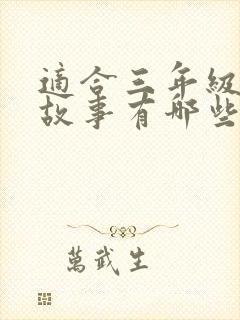 適合三年級
故事有哪些
萬武生